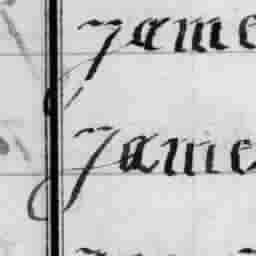 Jame
Jame